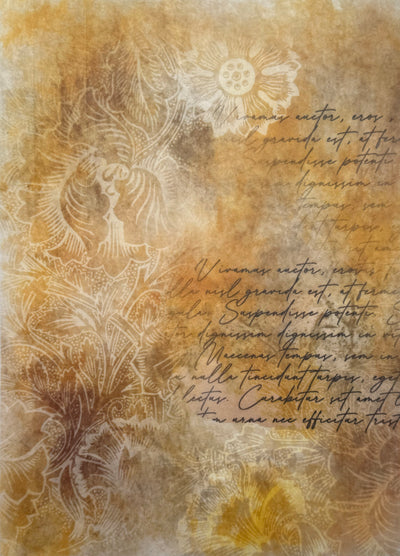 Vivamus auctor, eros,
nisl gravida est, at ferme
Suspendisse potenti.
dignissim in
tempus, sem
turpis,
sit am
Vivamus auctor, eros
lla nisl gravida est, at ferme
gula. Suspendisse potenti.
dignissim dignissim in vi
Maecenas tempus, sem in
a nulla tincidunt turpis, eget
lectus. Curabitur sit amet
m urna nec efficitur trist